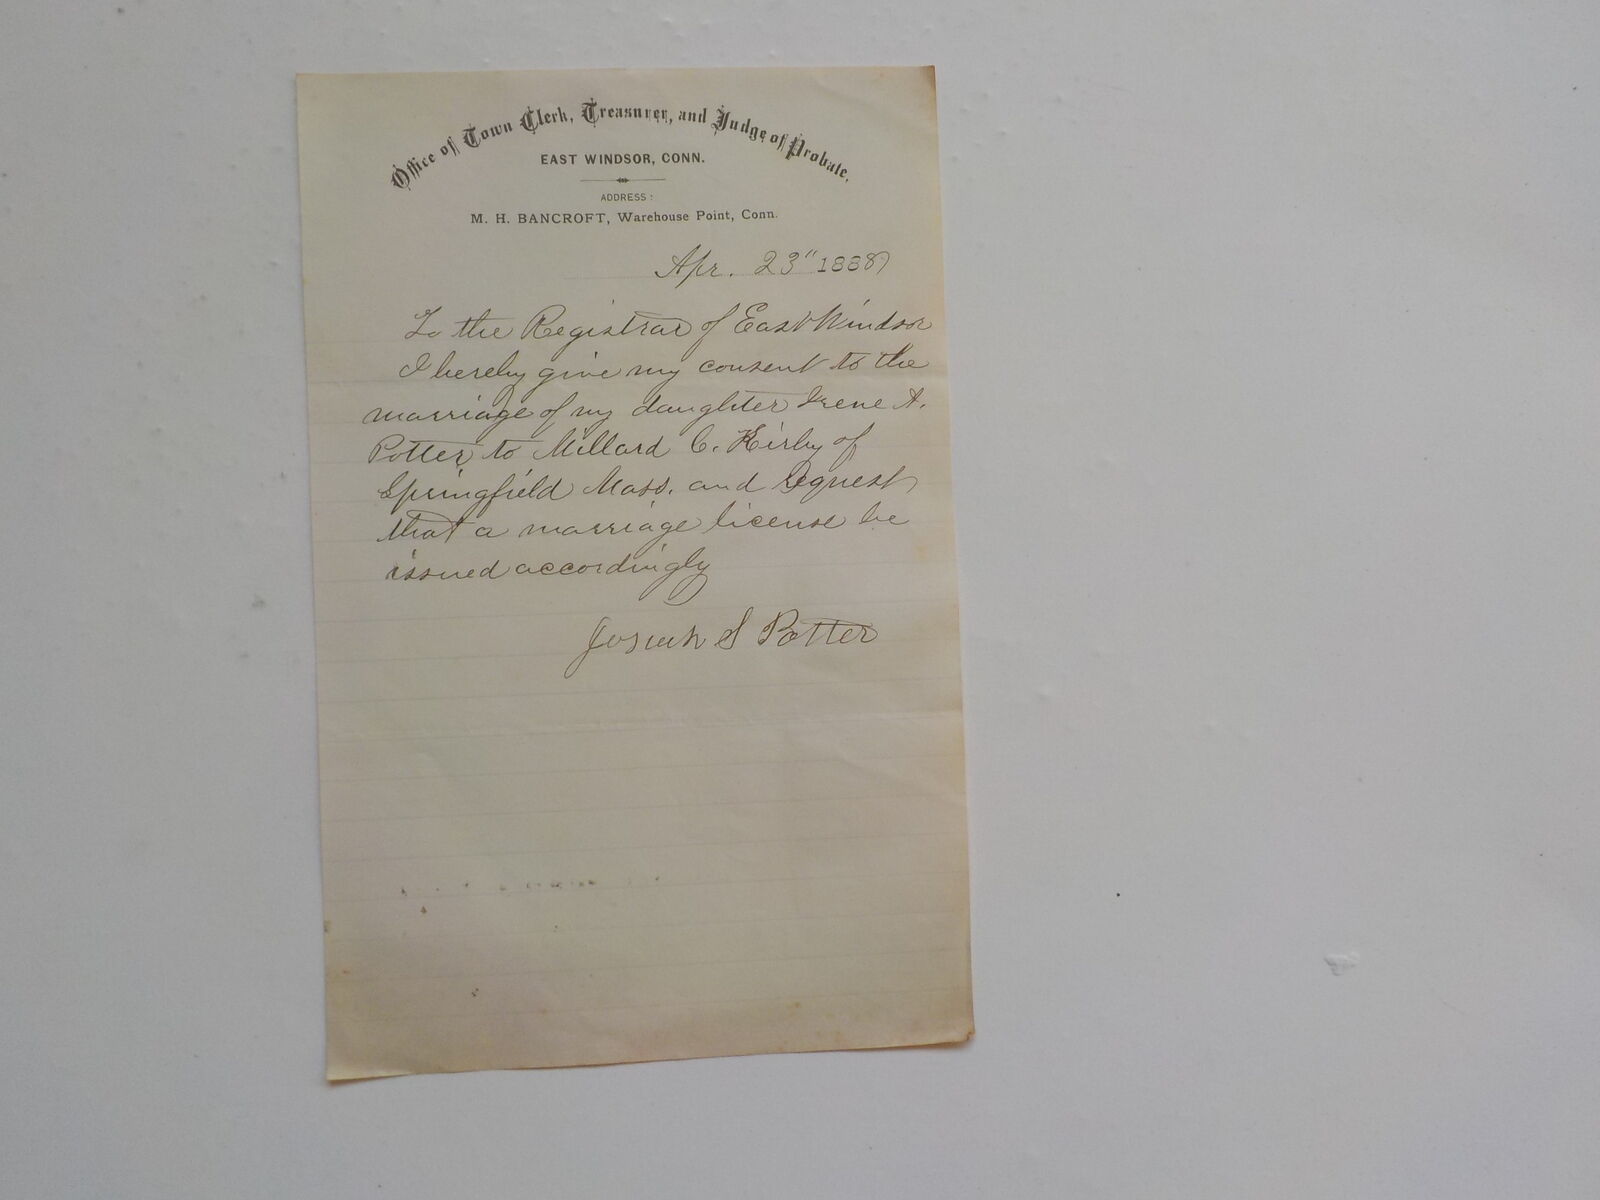 Office of Town Clerk, Treasurer, and Judge of Probate.
EAST WINDSOR, CONN.
ADDRESS:
M. H. BANCROFT, Warehouse Point, Conn.
Apr. 23" 1888
To the Registrar of East Windsor
I hereby give my consent to the
marriage of my daughter Irene A.
Potter to Millard C. Kirby of
Springfield Mass. and request
that a marriage license be
issued accordingly
Josiah S Potter